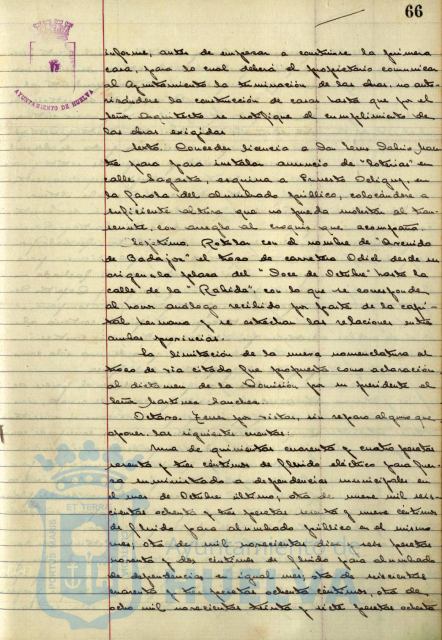 66
AYUNTAMIENTO DE HUELVA
informe, antes de empezar a construirse la primera
casa, para lo cual deberá el propietario comunicar
al Ayuntamiento la terminación de las obras, no auto-
rizándose la construcción de casas hasta que por el
Señor Arquitecto se notifique el cumplimiento de
las obras exigidas
Sexto. Conceder licencia a Don
para para instalar anuncio de "loterias" en
calle Sagasta, esquina a Ernesto Deligny, en
la farola del alumbrado público, colocándose a
suficiente altura que no pueda molestar al tran-
seunte, con arreglo al croquis que acompaña.
Septimo. Rotular con el nombre de "Avenida
de Badajoz" el trozo de carretera Odiel desde su
origen a la plaza del "Doce de Octubre" hasta la
calle de la "Rabida", con lo que se corresponde
al honor análogo recibido por parte de la capi-
tal hermana y se estrechan las relaciones entre
ambas provincias.
La limitación de la nueva nomenclatura al
trozo de via citado fue propuesto como aclaración
al dictamen de la Comisión por su presidente el
Señor Martinez Sanchez.
Octavo. Tener por vistas, sin reparo alguno que
oponer, las siguientes cuentas:
Una de quinientas cuarenta y cuatro pesetas
sesenta y tres céntimos de fluido eléctrico para fuer-
za suministrado a dependencias municipales en
el mes de Octubre último; otra de nueve mil seis-
cientas ochenta y tres pesetas y nueve céntimos
de fluido para alumbrado público en el mismo
mes; otra de mil novecientas diez y seis pesetas
noventa y dos céntimos de fluido para alumbrado
de dependencias en igual mes; otra de
cuarenta y tres pesetas ochenta céntimos, otra de
ocho mil novecientas treinta y siete pesetas ochenta